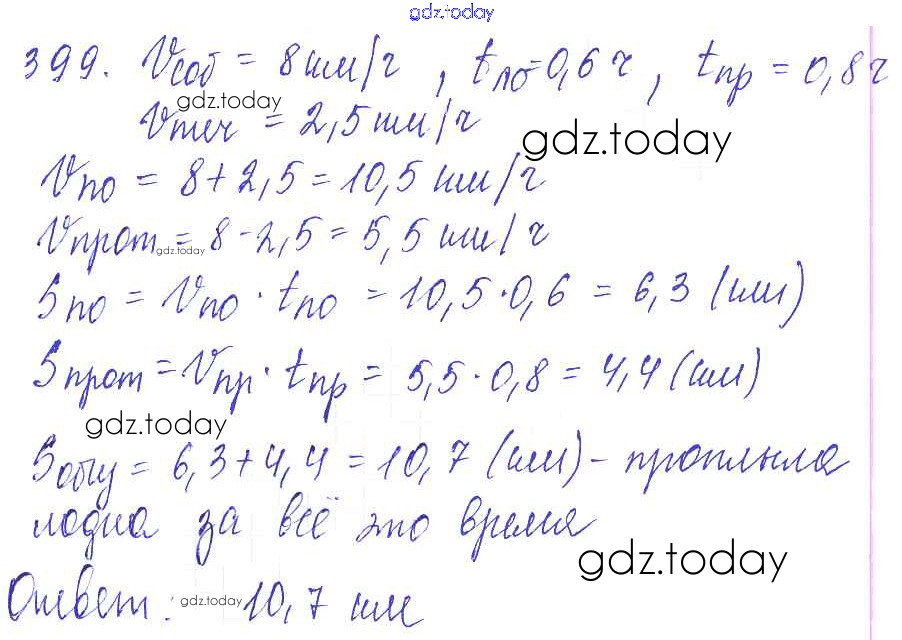 gdz.today
399. Vсоб = 8 км/ч , tпо=0,6 ч , tпр = 0,8ч
gdz.today
Vтеч = 2,5 км/ч
gdz.today
Vпо = 8 + 2,5 = 10,5 км/ч
Vпрот = 8 - 2,5 = 5,5 км/ч
gdz.today
Sпо = Vпо · tпо = 10,5 · 0,6 = 6,3 (км)
Sпрот = Vпр · tпр = 5,5 · 0,8 = 4,4 (км)
gdz.today
Sобщ = 6,3 + 4,4 = 10,7 (км) - проплыла
лодка за всё это время
gdz.today
Ответ: 10,7 км
gdz.today